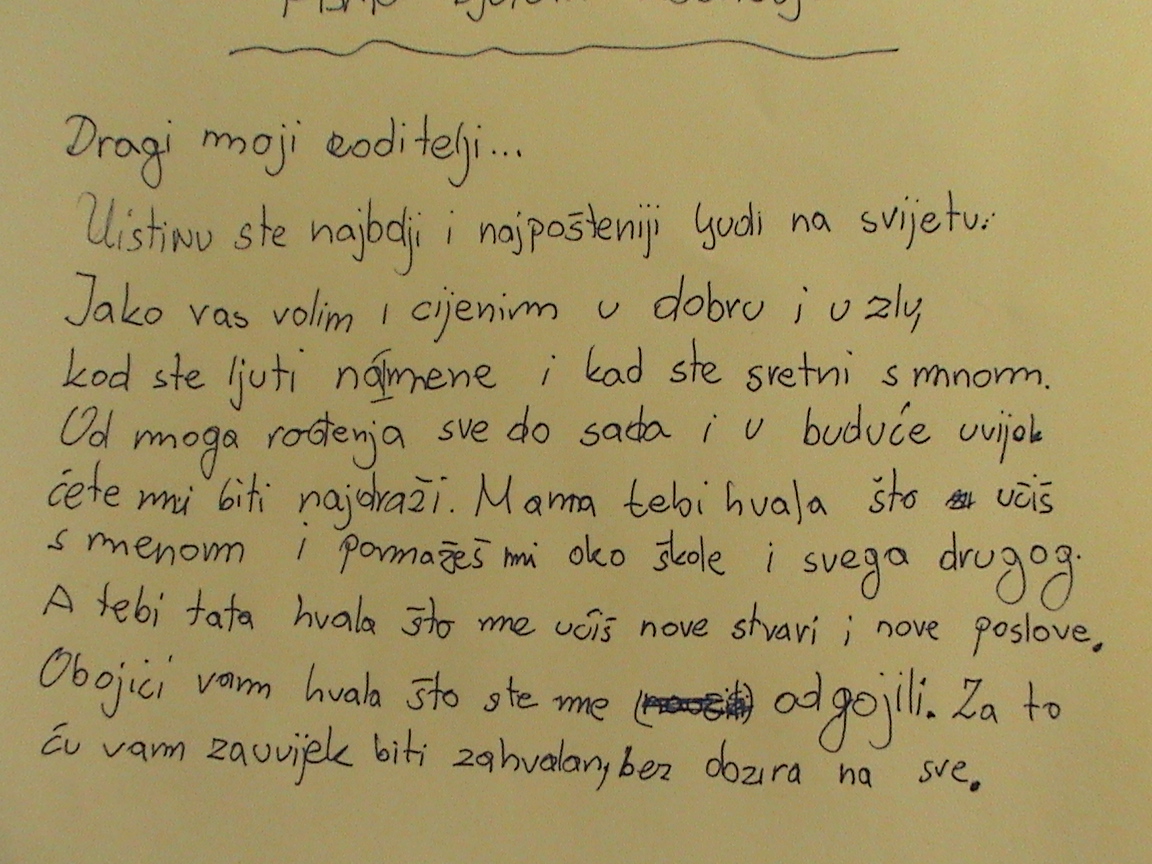 Dragi moji roditelji...
Uistinu ste najbolji i najpošteniji ljudi na svijetu.
Jako vas volim i cijenim u dobru i u zlu,
kod ste ljuti na mene i kad ste sretni s mnom.
Od moga rođenja sve do sada i u buduće uvijek
ćete mi biti najdraži. Mama tebi hvala što učiš
s menom i pomažeš mi oko škole i svega drugog.
A tebi tata hvala što me učiš nove stvari i nove poslove.
Obojici vam hvala što ste me odgojili. Za to
ću vam zauvijek biti zahvalan, bez obzira na sve.